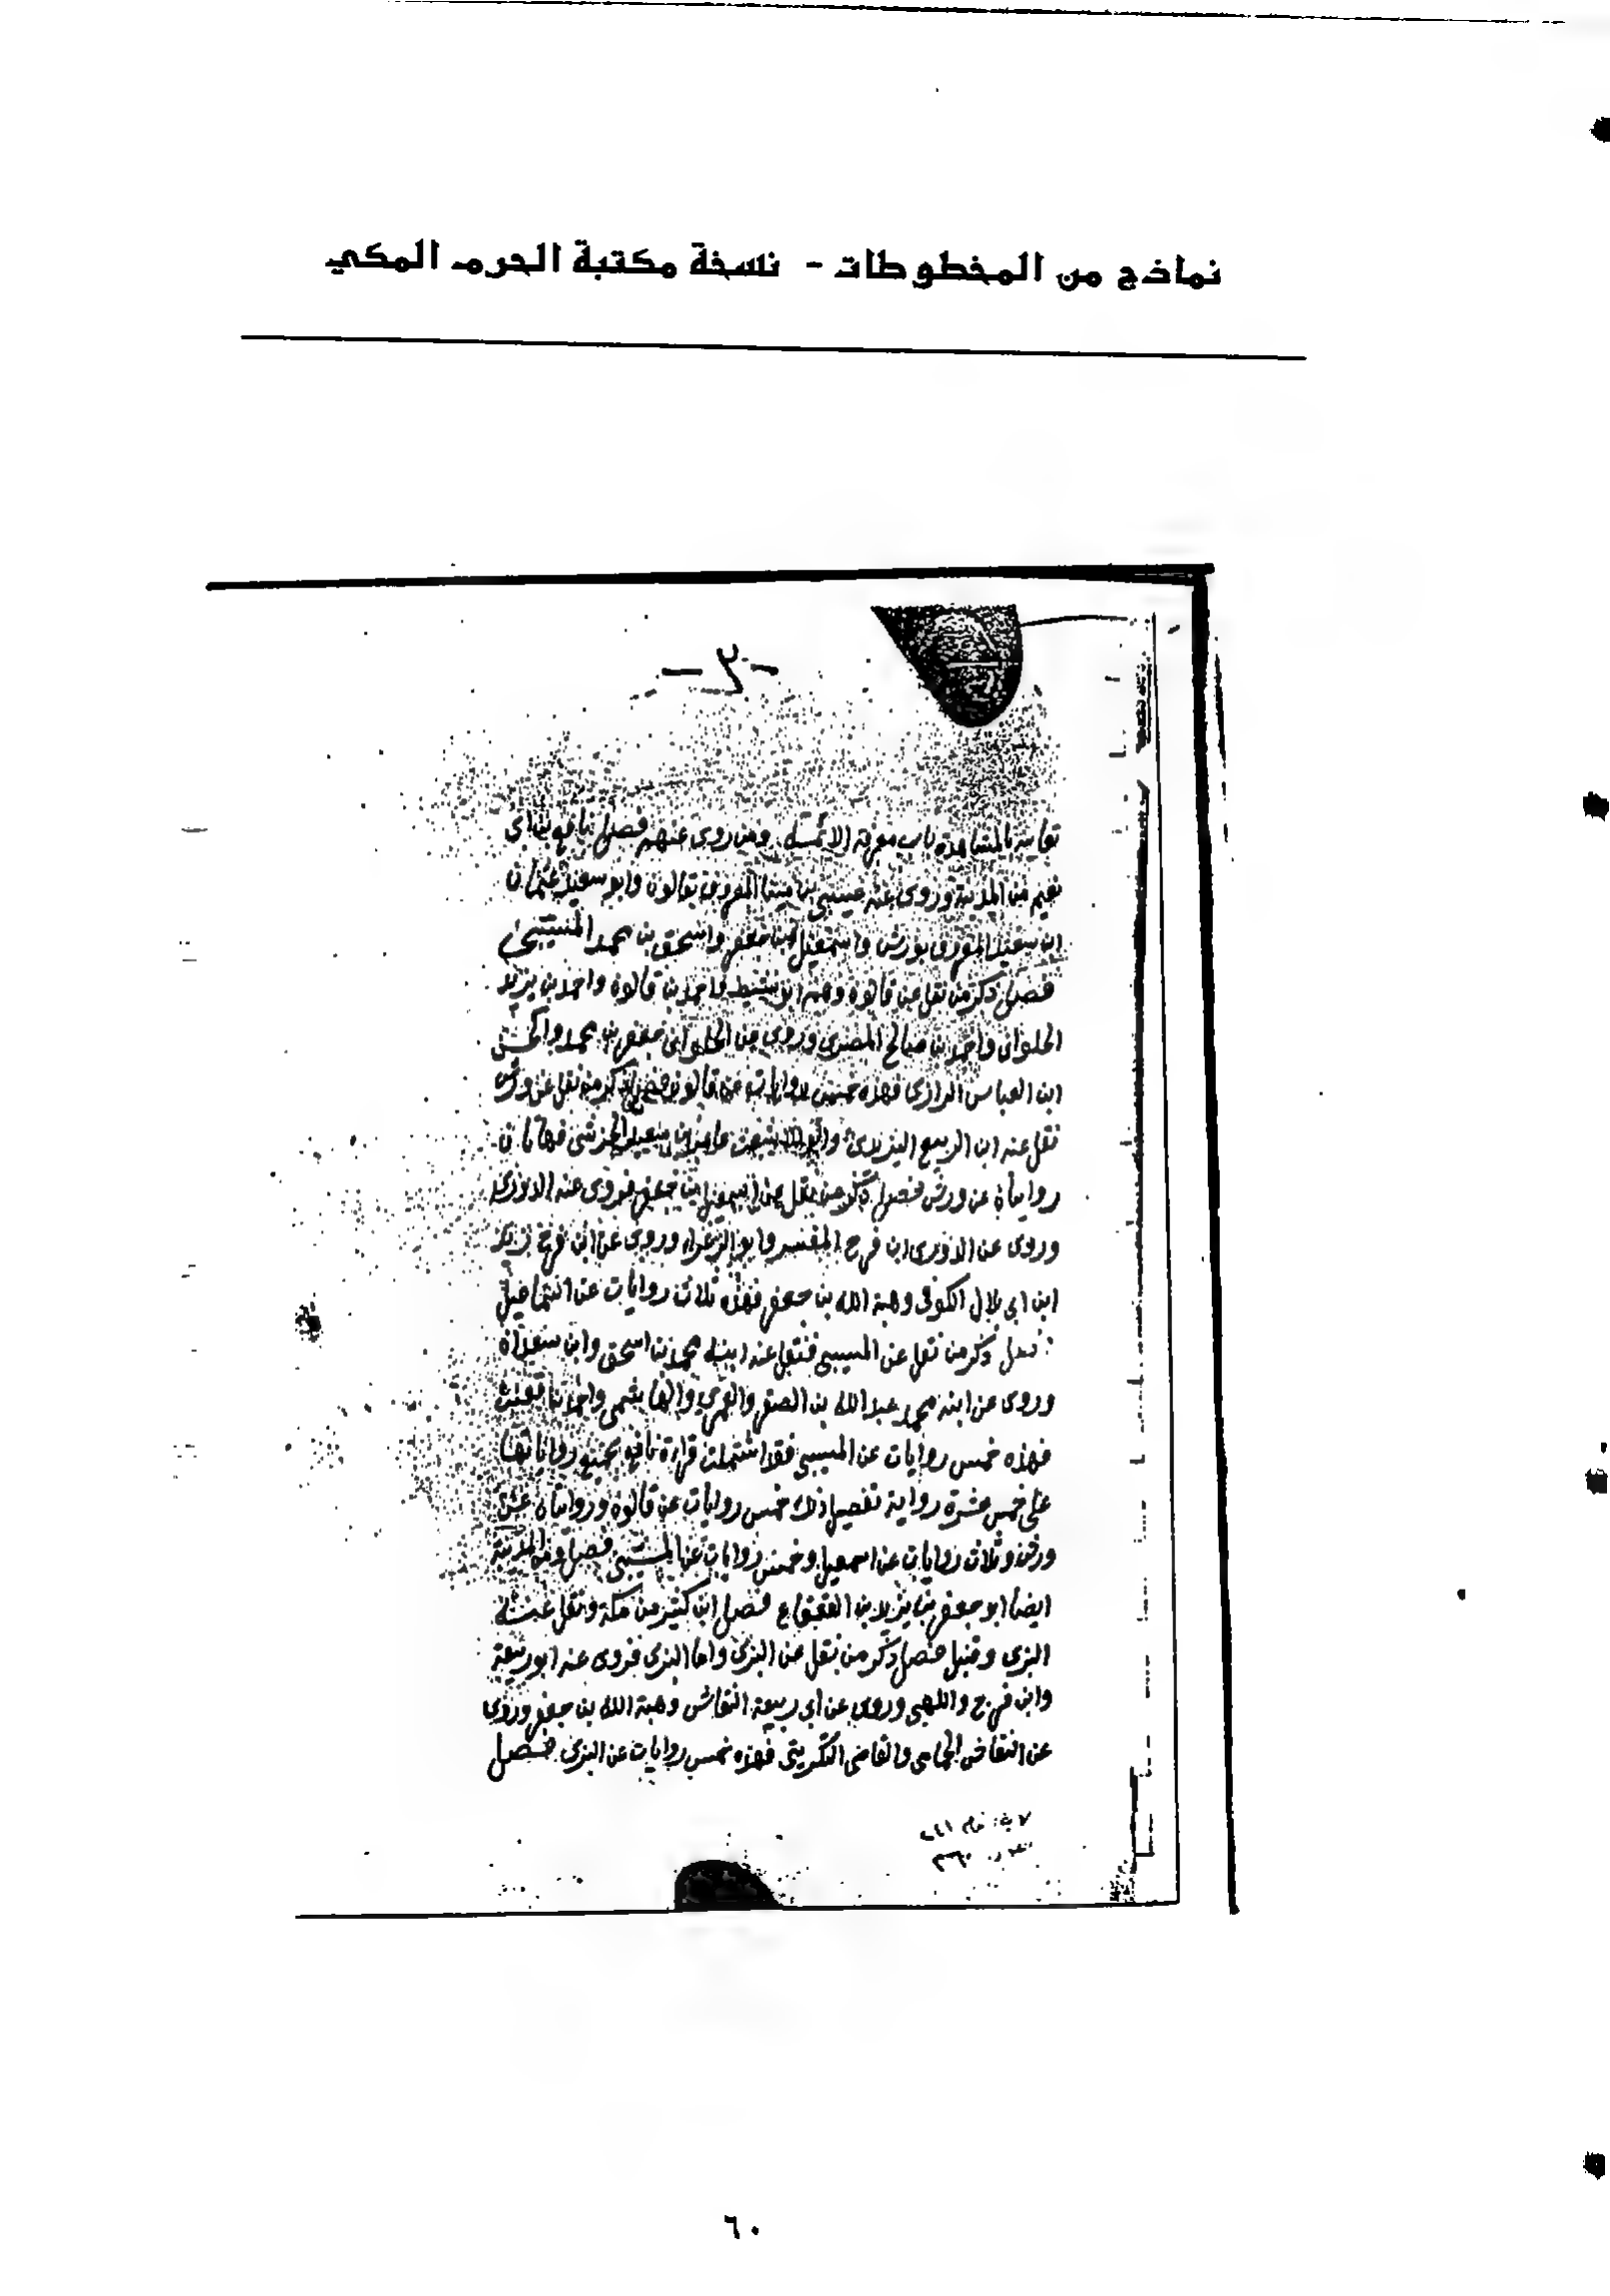 نماذج من المخطوطات - نسخة مكتبة الحرم المكي
-٣-
بالمشاهدة باب معرفة الائمة ومن روى عنهم فصل نافع بن ابي
نعيم من المدينة وروى عنه عيسى بن مينا المقرى بقالون وابو سعيد عثمان
ابن سعيد المقرى بورش واسمعيل بن جعفر واسحق بن محمد المسيبي
فصل ذكر من نقل عن قالون وهم ابو نشيط واحمد بن قالون واحمد بن يزيد
الحلواني واحمد بن صالح المصري وروى عن الحلواني جعفر بن محمد والحسن
ابن العباس الرازي فهذه خمس روايات عن قالون فصل ذكر من نقل عن ورش
نقل عنه ابن الربيع اليزيدي فهاتان
روايتان عن ورش فصل ذكر من نقل عن اسمعيل بن جعفر فروى عنه الدوري
وروى عن الدوري ابن فرح المفسر وابو الزعراء وروى عن ابن فرح زيد
ابن ابي بلال الكوفي وهبة الله بن جعفر فهذه ثلاث روايات عن اسماعيل
فصل ذكر من نقل عن المسيبي فنقل عنه ابنه محمد بن اسحق وابن سعدان
وروى عن ابنه محمد عبد الله بن الصقر
فهذه خمس روايات عن المسيبي فقد اشتملت قراءة نافع بجميع رواياتها
على خمس عشرة رواية تفصيل ذلك خمس روايات عن قالون وروايتان عن
ورش وثلاث روايات عن اسمعيل وخمس روايات عن المسيبي فصل ومن المدينة
ايضا ابو جعفر بن يزيد بن القعقاع فصل ابن كثير من مكة ونقل عنه
البزي وقنبل فصل ذكر من نقل عن البزي واما البزي فروى عنه ابو ربيعة
وابن فرح واللهبي وروى عن ابي ربيعة النقاش وهبة الله بن جعفر وروى
عن النقاش الحمامي والقاضي التكريتي فهذه خمس روايات عن البزي فصل
٦٠